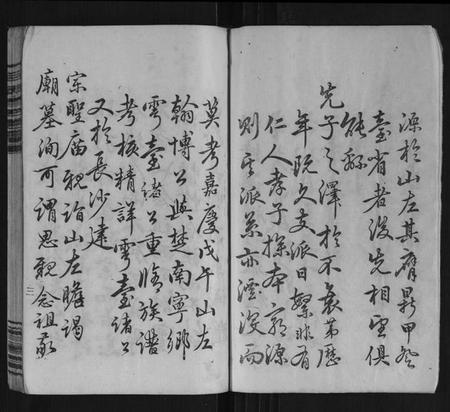 源於山左其膺鼎甲登
臺省者後先相望俱
能綿
先子之澤於不衰第歷
年既久支派日繁非有
仁人孝子探本窮源
則宗派茶亦湮没而
莫考嘉慶戊午山左
翰博公與楚南寧鄉
雩臺諸公重脩族譜
考核精詳雩臺諸公
又於長沙建
宗聖廟親詣山左瞻謁
廟墓洵可謂思親念祖敦